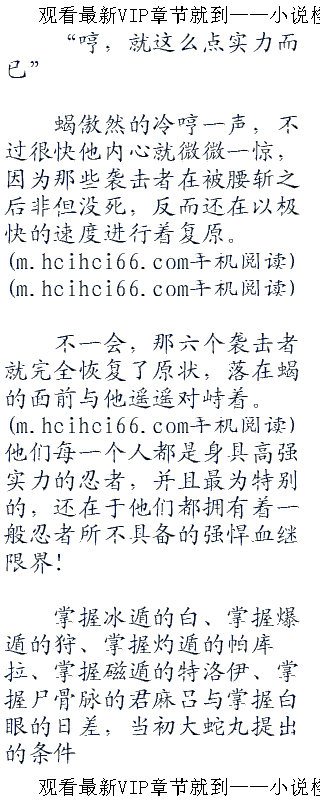 观看最新VIP章节就到——小说
“哼，就这么点实力而
已”
蝎傲然的冷哼一声，不
过很快他内心就微微一惊，
因为那些袭击者在被腰斩之
后非但没死，反而还在以极
快的速度进行着复原。
(m.hcihci66.com手机阅读)
(m.hcihci66.com手机阅读)
不一会，那六个袭击者
就完全恢复了原状，落在蝎
的面前与他遥遥对峙着。
(m.hcihci66.com手机阅读)
他们每一个人都是身具高强
实力的忍者，并且最为特别
的，还在于他们都拥有着一
般忍者所不具备的强悍血继
限界！
掌握冰遁的白、掌握爆
遁的狩、掌握灼遁的帕库
拉、掌握磁遁的特洛伊、掌
握尸骨脉的君麻吕与掌握白
眼的日差，当初大蛇丸提出
的条件
观看最新VIP章节就到——小说